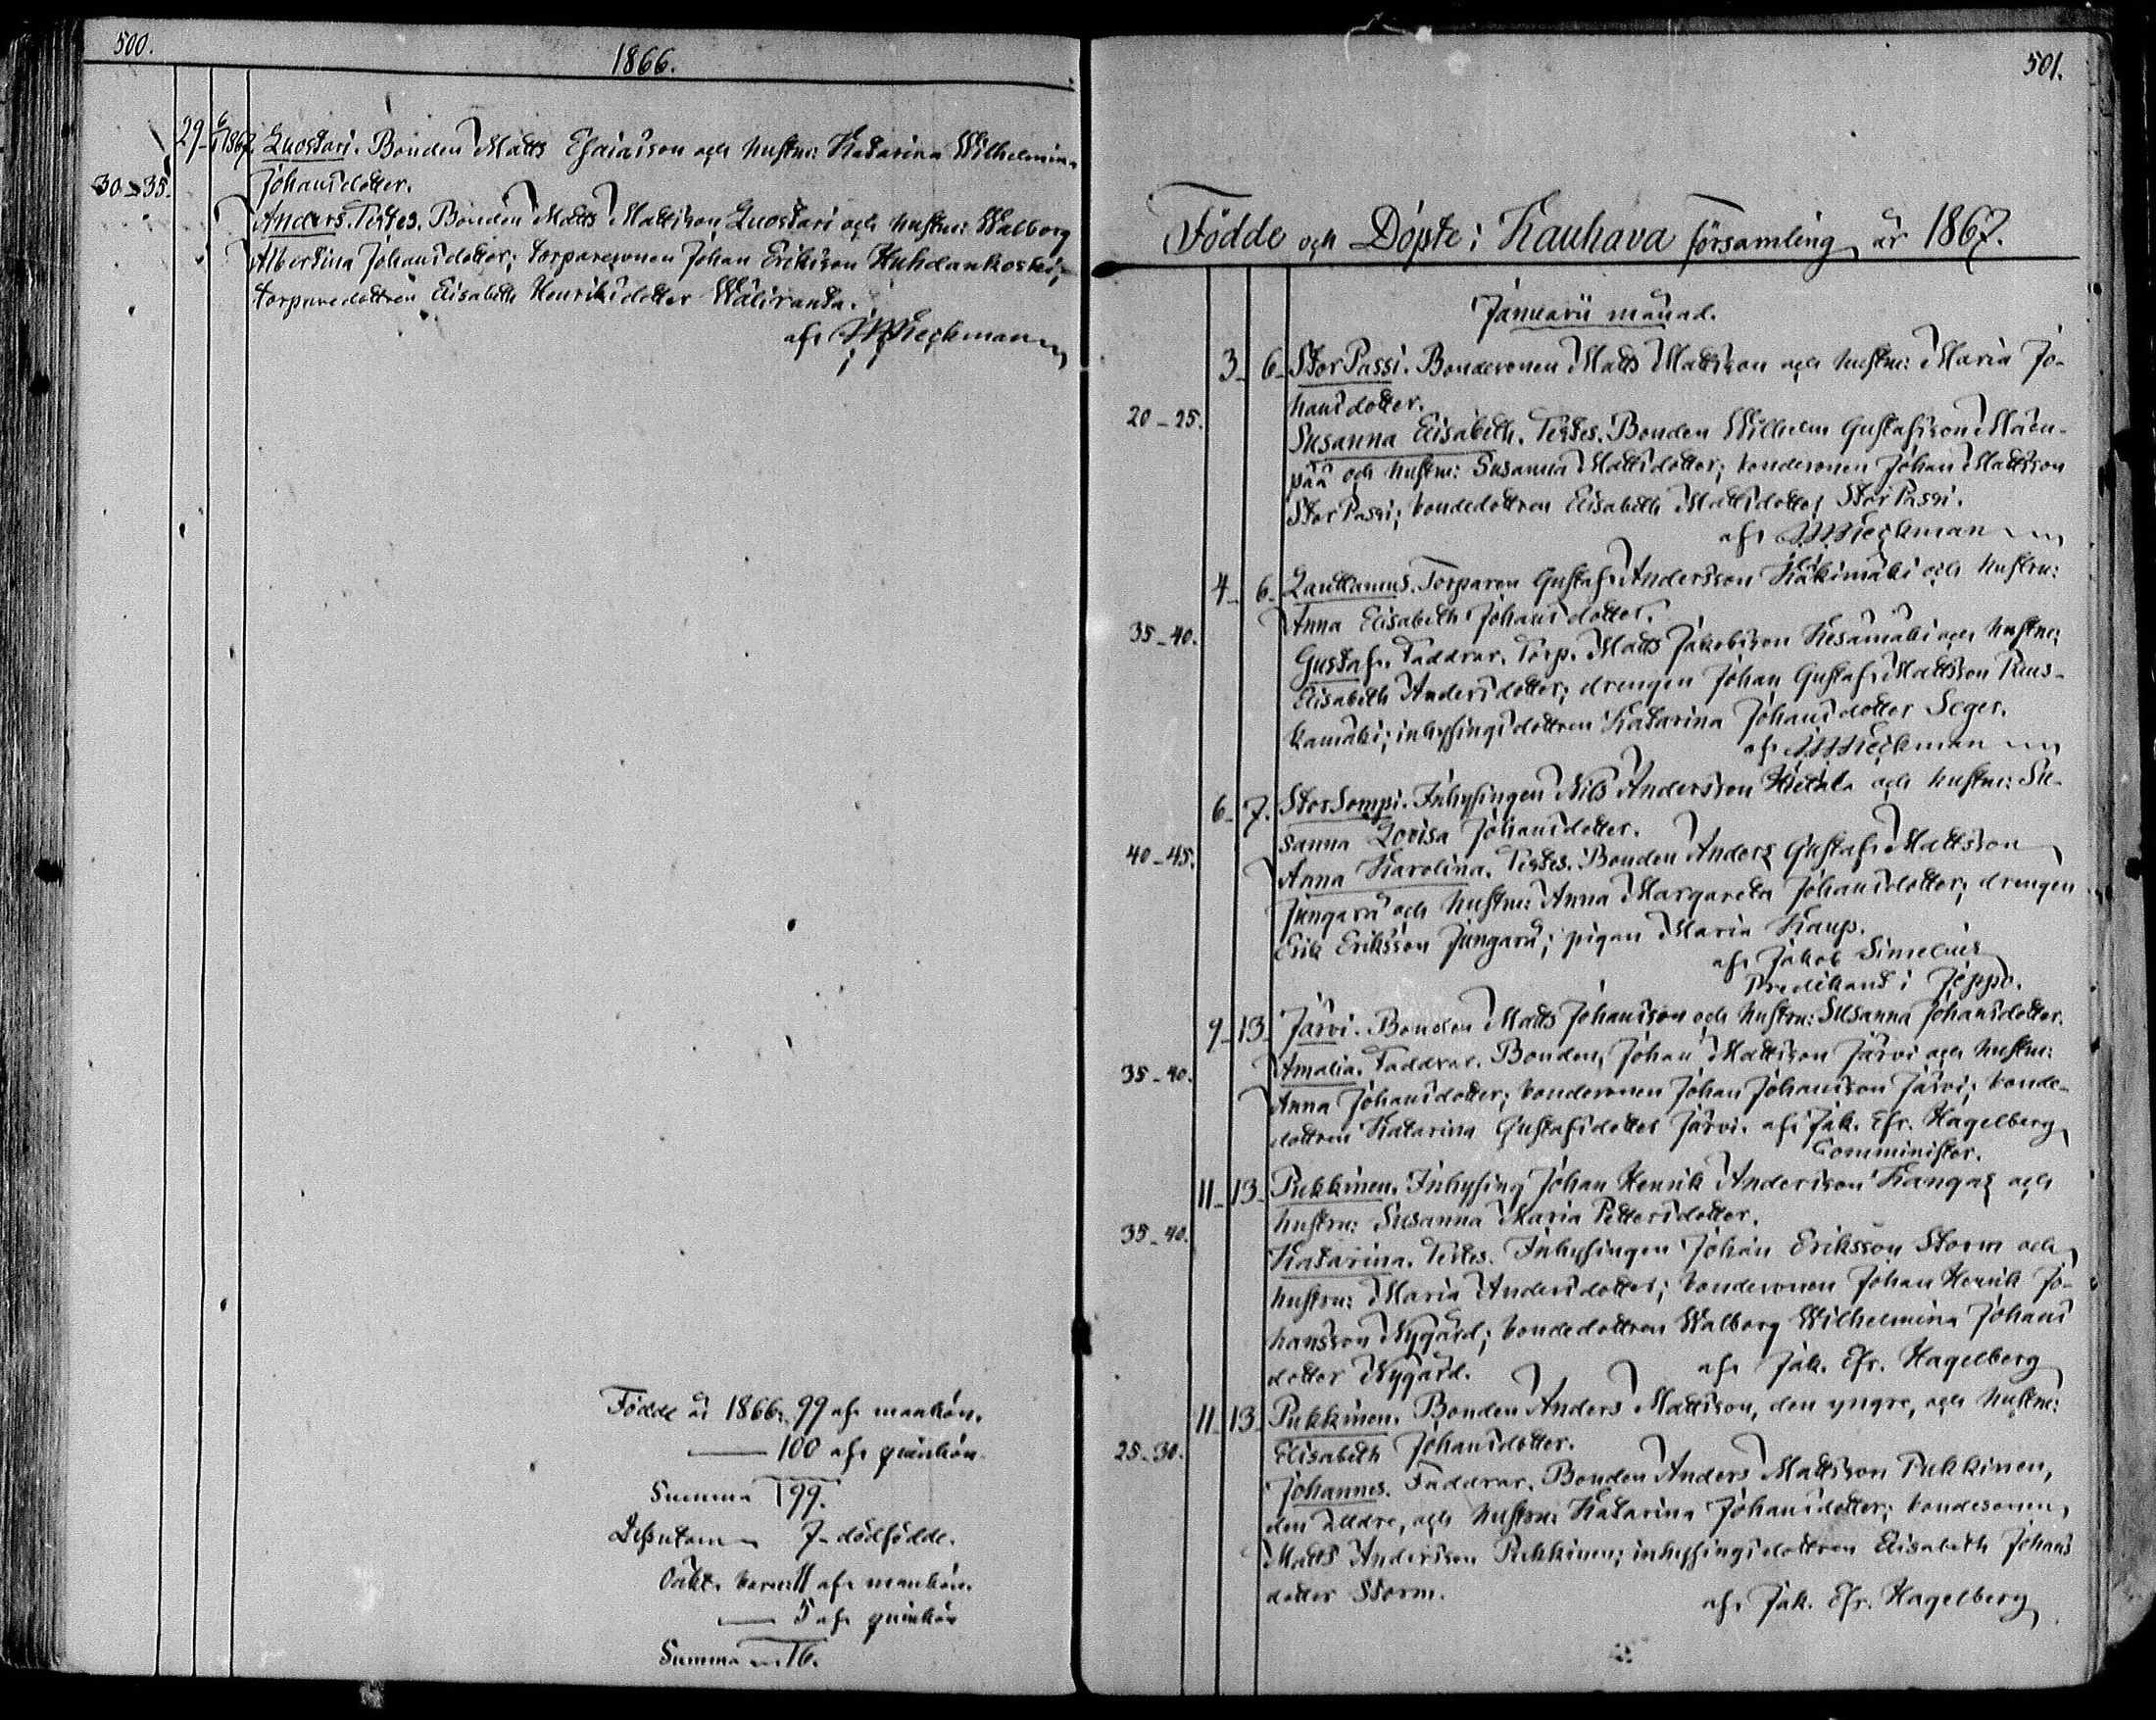 500.
1866.
29 6/1 1867. Luostari. Bonden Matts Esaiasson och hustru: Katarina Wilhelmina
30-35. Johansdotter.
Anders. Testes. Bonden Matts Mattsson Luostari och hustru: Walborg
Albertina Johansdotter; torparesonen Johan Eriksson Huhdankoski;
torparedottren Elisabeth Henriksdotter Wäliranta.
af
Födde år 1866: 99 af mankön.
100 af qvinkön
Summa 199.
Dessutom 7 dödfödde.
Oäkt. barn: 11 af mankön.
5 af qvinkön
Summa 16.
501.
Födde och Döpte i Kauhava församling år 1867.
Januarii månad.
3 6 Stor Passi. Bondesonen Matts Mattsson och hustru: Maria Jo-
20-25. hansdotter.
Susanna Elisabeth. Testes. Bonden Wilhelm Gustafsson Mäen-
pää och hustru: Susanna Mattsdotter; bondesonen Johan Mattsson
Stor Passi; bondedottren Elisabeth Mattsdotter Stor Passi.
af
4 6 Lauttamus. Torparen Gustaf Andersson Käkimäki och hustru:
35-40. Anna Elisabeth Johansdotter.
Gustaf. Faddrar. Torp. Matts Jakobsson Kesämäki och hustru:
Elisabeth Andersdotter; drengen Johan Gustaf Mattsson Ruus-
kamäki; inhysingsdottren Katarina Johansdotter Seger.
af
6 7. Stor Sompi. Inhysingen Nils Andersson Hietala och hustru: Su-
sanna Lovisa Johansdotter.
40-45. Anna Karolina. Testes. Bonden Anders Gustaf Mattsson
Jungarå och hustru: Anna Margareta Johansdotter; drengen
Erik Eriksson Jungarå; pigan Maria Kaup.
af Jakob Simelius
Predikant i Jeppo.
9 13 Järvi. Bonden Matts Johansson och hustru: Susanna Johansdotter.
35-40. Amalia. Faddrar. Bonden, Johan Mattsson Järvi och hustru:
Anna Johansdotter; bondesonen Johan Johansson Järvi; bonde-
dottren Katarina Gustafsdotter Järvi. af Jak. Efr. Hagelberg
Comminister.
11 13 Pukkinen. Inhysing Johan Henrik Andersson Kangas och
35-40. hustru: Susanna Maria Pettersdotter.
Katarina. Testes. Inhysingen Johan Eriksson Storm och
hustru: Maria Andersdotter; bondesonen Johan Henrik Jo-
hansson Nygård; bondedottren Walborg Wilhelmina Johans
dotter Nygård. af Jak. Efr. Hagelberg
11 13 Pukkinen. Bonden Anders Mattsson, den yngre, och hustru:
25-30. Elisabeth Johansdotter.
Johannes. Faddrar. Bonden Anders Mattsson Pukkinen,
den äldre, och hustru: Katarina Johansdotter; bondesonen
Matts Andersson Pukkinen; inhysingsdottren Elisabeth Johans
dotter Storm. af Jak. Efr. Hagelberg